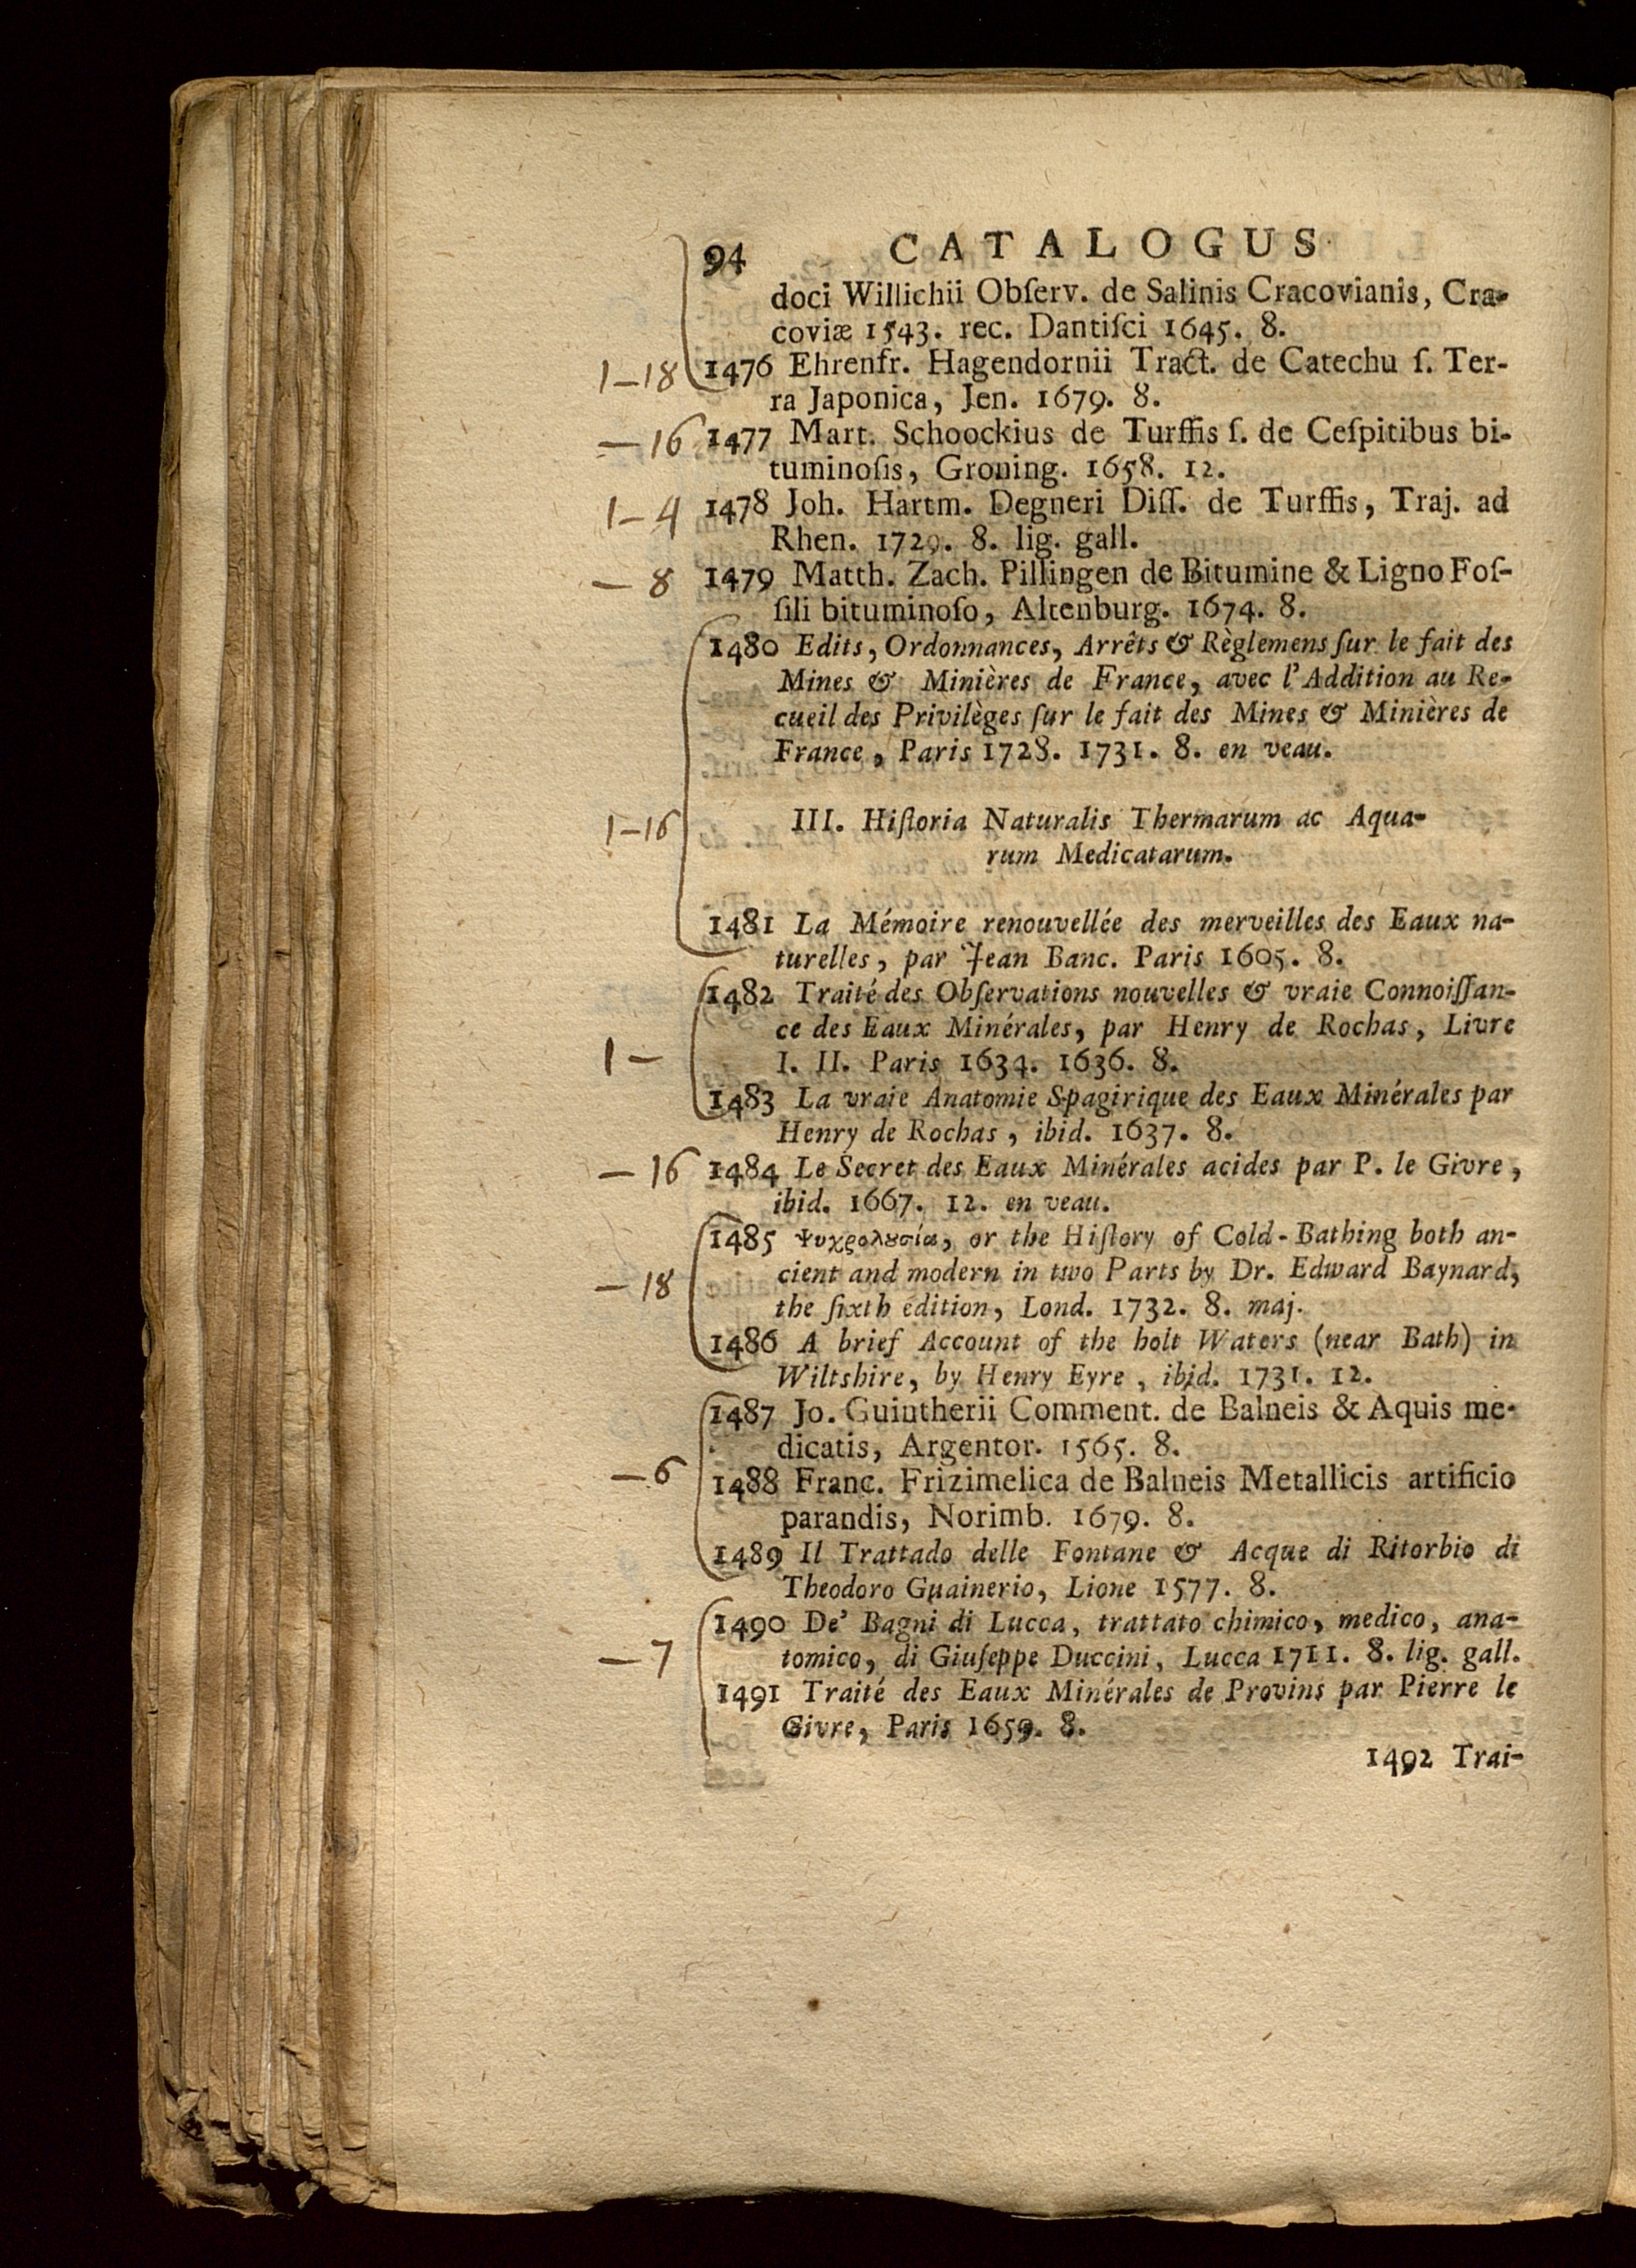 94 CATALOGUS
doci Willichii Obſerv. de Salinis Cracovianis, Cra-
coviæ 1543. rec. Dantiſci 1645. 8.
1-18 1476 Ehrenfr. Hagendornii Tract. de Catechu ſ. Ter-
ra Japonica, Jen. 1679. 8.
-16 1477 Mart. Schoockius de Turffis ſ. de Ceſpitibus bi-
tuminoſis, Groning. 1658. 12.
1-4 1478 Joh. Hartm. Degneri Diſſ. de Turffis, Traj. ad
Rhen. 1729. 8. lig. gall.
-8 1479 Matth. Zach. Pillingen de Bitumine & Ligno Foſ-
ſili bituminoſo, Altenburg. 1674. 8.
1480 Edits, Ordonnances, Arrêts & Règlemens ſur le fait des
Mines & Minières de France, avec l'Addition au Re-
cueil des Privilèges ſur le fait des Mines & Minières de
France, Paris 1728. 1731. 8. en veau.
1-16 III. Hiſtoria Naturalis Thermarum ac Aqua-
rum Medicatarum.
1481 La Mémoire renouvellée des merveilles des Eaux na-
turelles, par Jean Banc. Paris 1605. 8.
1482 Traité des Obſervations nouvelles & vraie Connoiſſan-
ce des Eaux Minérales, par Henry de Rochas, Livre
1- I. II. Paris 1634. 1636. 8.
1483 La vraie Anatomie Spagirique des Eaux Minérales par
Henry de Rochas, ibid. 1637. 8.
-16 1484 Le Secret des Eaux Minérales acides par P. le Givre,
ibid. 1667. 12. en veau.
1485 Ψυχρολȣσία, or the Hiſtory of Cold-Bathing both an-
-18 cient and modern in two Parts by Dr. Edward Baynard,
the ſixth edition, Lond. 1732. 8. maj.
1486 A brief Account of the holt Waters (near Bath) in
Wiltshire, by Henry Eyre, ibid. 1731. 12.
1487 Jo. Guintherii Comment. de Balneis & Aquis me-
dicatis, Argentor. 1565. 8.
-6 1488 Franc. Frizimelica de Balneis Metallicis artificio
parandis, Norimb. 1679. 8.
1489 Il Trattado delle Fontane & Acque di Ritorbio di
Theodoro Guainerio, Lione 1577. 8.
1490 De' Bagni di Lucca, trattato chimico, medico, ana-
-7 tomico, di Giuſeppe Duccini, Lucca 1711. 8. lig. gall.
1491 Traité des Eaux Minérales de Provins par Pierre le
Givre, Paris 1659. 8.
1492 Trai-